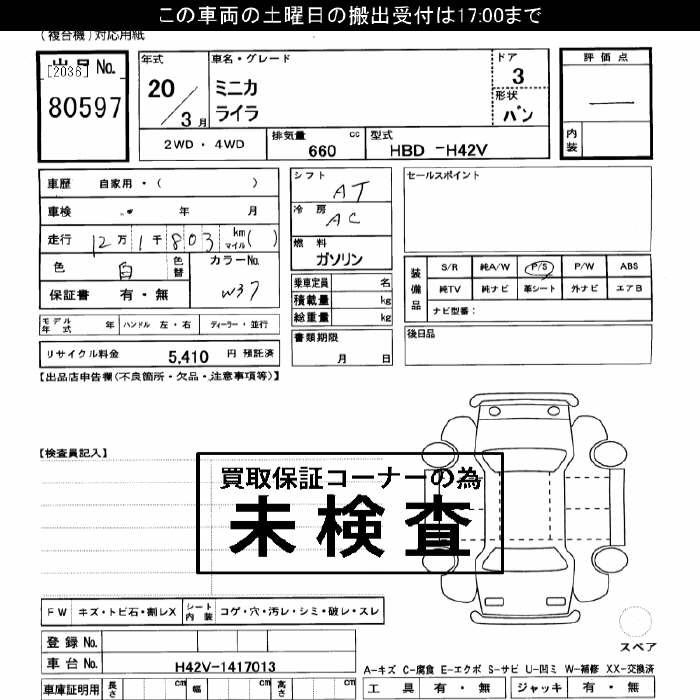 この車両の土曜日の搬出受付は17:00まで
(複合機)対応用紙
出品No.
[2036]
80597
年式
20／3月
車名・グレード
ミニカ
ライラ
ドア
3
形状
バン
評価点
―
内装
2WD・4WD
排気量 cc
660
型式
HBD -H42V
車歴 自家用・( )
車検 年 月
走行 12万1千803 km マイル( )
色 白 色替
カラーNo.
W37
保証書 有・無
シフト
AT
冷房
AC
燃料
ガソリン
乗車定員 名
積載量 kg
総重量 kg
セールスポイント
装備品
S/R 純A/W P/S P/W ABS
純TV 純ナビ 革シート 外ナビ エアB
ナビ型番:
モデル年式 年 ハンドル 左・右 ディーラー・並行
書類期限
月 日
後日品
リサイクル料金 5,410 円 預託済
【出品店申告欄(不良箇所・欠品・注意事項等)】
【検査員記入】
買取保証コーナーの為
未検査
FW キズ・トビ石・割レX シート内装 コゲ・穴・汚レ・シミ・破レ・スレ
登録No.
車台No. H42V-1417013
車庫証明用 長さ cm 幅 cm 高さ cm
スペア
A-キズ C-腐食 E-エクボ S-サビ U-凹ミ W-補修 XX-交換済
工具 有・無 ジャッキ 有・無